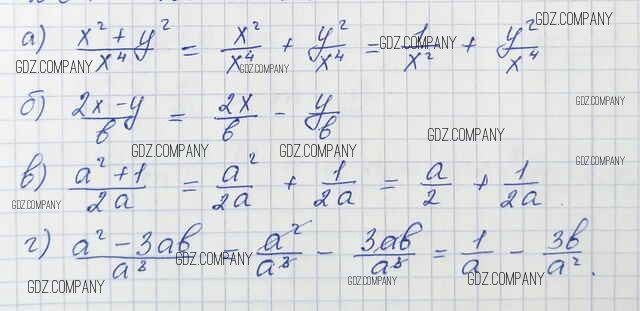 а) (x² + y²)/x⁴ = x²/x⁴ + y²/x⁴ = 1/x² + y²/x⁴
б) (2x - y)/b = 2x/b - y/b
в) (a² + 1)/2a = a²/2a + 1/2a = a/2 + 1/2a.
г) (a² - 3ab)/a³ = a²/a³ - 3ab/a³ = 1/a - 3b/a².
GDZ.COMPANY
GDZ.COMPANY
GDZ.COMPANY
GDZ.COMPANY
GDZ.COMPANY
GDZ.COMPANY
GDZ.COMPANY
GDZ.COMPANY
GDZ.COMPANY
GDZ.COMPANY
GDZ.COMPANY
GDZ.COMPANY
GDZ.COMPANY
GDZ.COMPANY